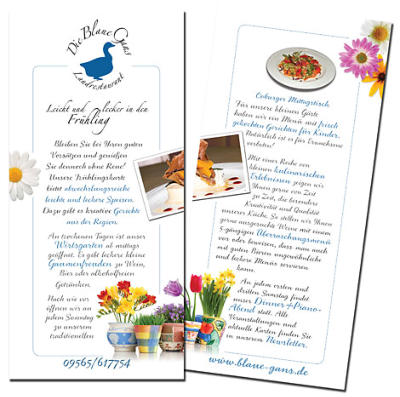 Die Blaue Gans
Landrestaurant
Leicht und lecker in den
Frühling
Bleiben Sie bei Ihren guten
Vorsätzen und genießen
Sie dennoch ohne Reue!
Unsere Frühlingskarte
bietet abwechslungsreiche
leichte und leckere Speisen.
Dazu gibt es kreative Gerichte
aus der Region.
An trockenen Tagen ist unser
Wirtsgarten ab mittags
geöffnet. Es gibt leckere kleine
Gaumenfreuden zu Wein,
Bier oder alkoholfreien
Getränken.
Nach wie vor
öffnen wir an
jedem Sonntag
zu unserem
traditionellen
09565/617754
Coburger Mittagstisch
Für unsere kleinen Gäste
haben wir ein Menü mit frisch
gekochten Gerichten für Kinder.
Natürlich ist es für Erwachsene
verboten!
Mit einer Reihe von
kleinen kulinarischen
Erlebnissen zeigen wir
Ihnen gerne von Zeit
zu Zeit, die besondere
Kreativität und Qualität
unserer Küche. So stellen wir Ihnen
gerne ausgesuchte Weine mit einem
5-gängigen Überraschungsmenü
vor oder beweisen, dass man auch
mit guten Bieren ungewöhnliche
und leckere Menüs servieren
kann.
An jedem ersten und
dritten Samstag findet
unser Dinner+Piano-
Abend statt. Alle
Veranstaltungen und
aktuelle Karten finden Sie
in unserem Newsletter.
www.blaue-gans.de